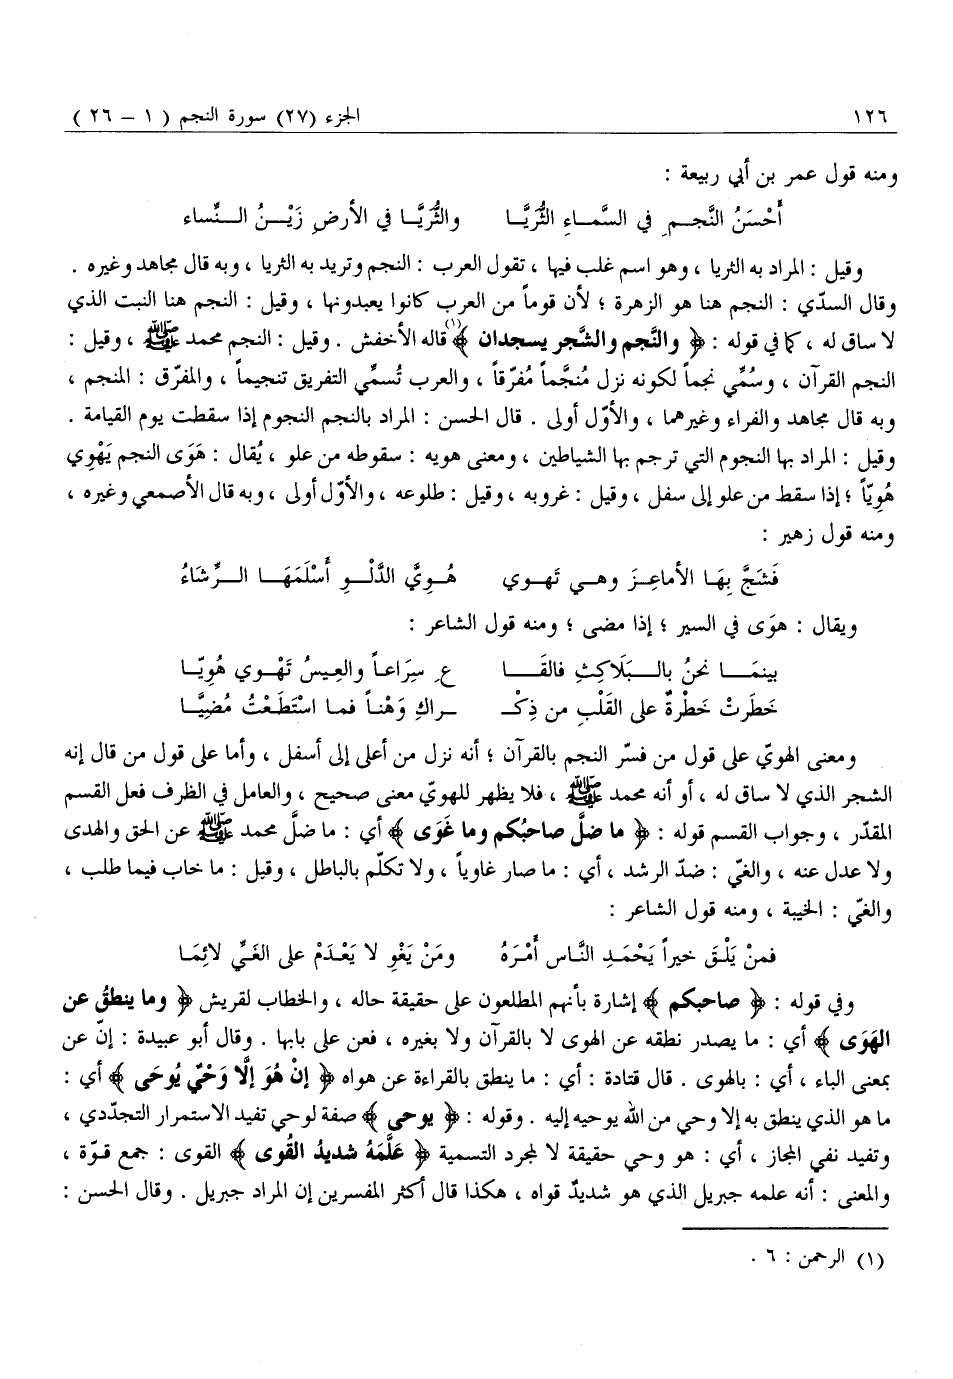 ١٢٦ الجزء (٢٧) سورة النجم ( ١ – ٢٦ )
ومنه قول عمر بن أبي ربيعة :
أَحْسَنُ النَّجـمِ في السَّمـاءِ الثُّرَيَّـا والثُّرَيَّـا في الأرضِ زَيْـنُ النِّساء
وقيل : المراد به الثريا ، وهو اسم غلب فيها ، تقول العرب : النجم وتريد به الثريا ، وبه قال مجاهد وغيره .
وقال السدّي : النجم هنا هو الزهرة ؛ لأن قوماً من العرب كانوا يعبدونها ، وقيل : النجم هنا النبت الذي
لا ساق له ، كما في قوله : ﴿ والنَّجم والشَّجر يسجدان ﴾(١) قاله الأخفش . وقيل : النجم محمد ﷺ ، وقيل :
النجم القرآن ، وسُمِّي نجماً لكونه نزل مُنجَّماً مُفرّقاً ، والعرب تُسمِّي التفريق تنجيماً ، والمفرّق : المنجم ،
وبه قال مجاهد والفراء وغيرهما ، والأوّل أولى . قال الحسن : المراد بالنجم النجوم إذا سقطت يوم القيامة .
وقيل : المراد بها النجوم التي ترجم بها الشياطين ، ومعنى هويه : سقوطه من علو ، يُقال : هَوَى النجم يَهْوِي
هُوِيّاً ؛ إذا سقط من علو إلى سفل ، وقيل : غروبه ، وقيل : طلوعه ، والأوّل أولى ، وبه قال الأصمعي وغيره ،
ومنه قول زهير :
فَشَجَّ بِهَـا الأماعِـزَ وهـي تَهـوي هُـوِيَّ الدَّلْـوِ أَسْلَمَهَـا الـرِّشَاءُ
ويقال : هوَى في السير ؛ إذا مضى ؛ ومنه قول الشاعر :
بينمَـا نحنُ بالـبَلَاكِثِ فالقَـا عِ سِرَاعـاً والعِيسُ تَهْوي هُوِيّـا
خَطَرَتْ خَطْرةٌ على القَلْبِ من ذِكْـ ـراكِ وَهْنـاً فمـا اسْتَطَعْتُ مُضِيَّـا
ومعنى الهويّ على قول من فسّر النجم بالقرآن ؛ أنه نزل من أعلى إلى أسفل ، وأما على قول من قال إنه
الشجر الذي لا ساق له ، أو أنه محمد ﷺ ، فلا يظهر للهويّ معنى صحيح ، والعامل في الظرف فعل القسم
المقدّر ، وجواب القسم قوله : ﴿ ما ضلَّ صاحبُكم وما غَوَى ﴾ أي : ما ضلَّ محمد ﷺ عن الحق والهدى
ولا عدل عنه ، والغيّ : ضدّ الرشد ، أي : ما صار غاوياً ، ولا تكلّم بالباطل ، وقيل : ما خاب فيما طلب ،
والغيّ : الخيبة ، ومنه قول الشاعر :
فمنْ يَلْـقَ خيراً يَحْمَـدِ النَّـاس أَمْـرَهُ ومَنْ يَغْوِ لا يَعْـدَمْ على الغَيِّ لائِمَـا
وفي قوله : ﴿ صاحبكم ﴾ إشارة بأنهم المطلعون على حقيقة حاله ، والخطاب لقريش ﴿ وما ينطقُ عن
الهَوَى ﴾ أي : ما يصدر نطقه عن الهوى لا بالقرآن ولا بغيره ، فعن على بابها . وقال أبو عبيدة : إنّ عن
بمعنى الباء ، أي : بالهوى . قال قتادة : أي : ما ينطق بالقراءة عن هواه ﴿ إنْ هُوَ إلَّا وَحْيٌ يُوحَى ﴾ أي :
ما هو الذي ينطق به إلا وحي من الله يوحيه إليه . وقوله : ﴿ يوحى ﴾ صفة لوحي تفيد الاستمرار التجدّدي ،
وتفيد نفي المجاز ، أي : هو وحي حقيقة لا لمجرد التسمية ﴿ علَّمَهُ شديدُ القُوى ﴾ القوى : جمع قوّة ،
والمعنى : أنه علمه جبريل الذي هو شديدٌ قواه ، هكذا قال أكثر المفسرين إن المراد جبريل . وقال الحسن :
(١) الرحمن : ٦ .